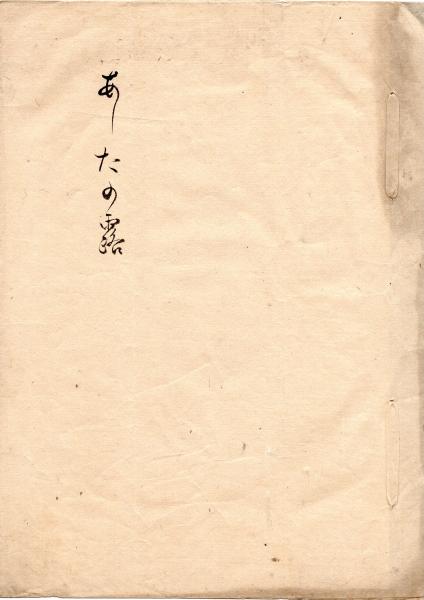 あしたの露